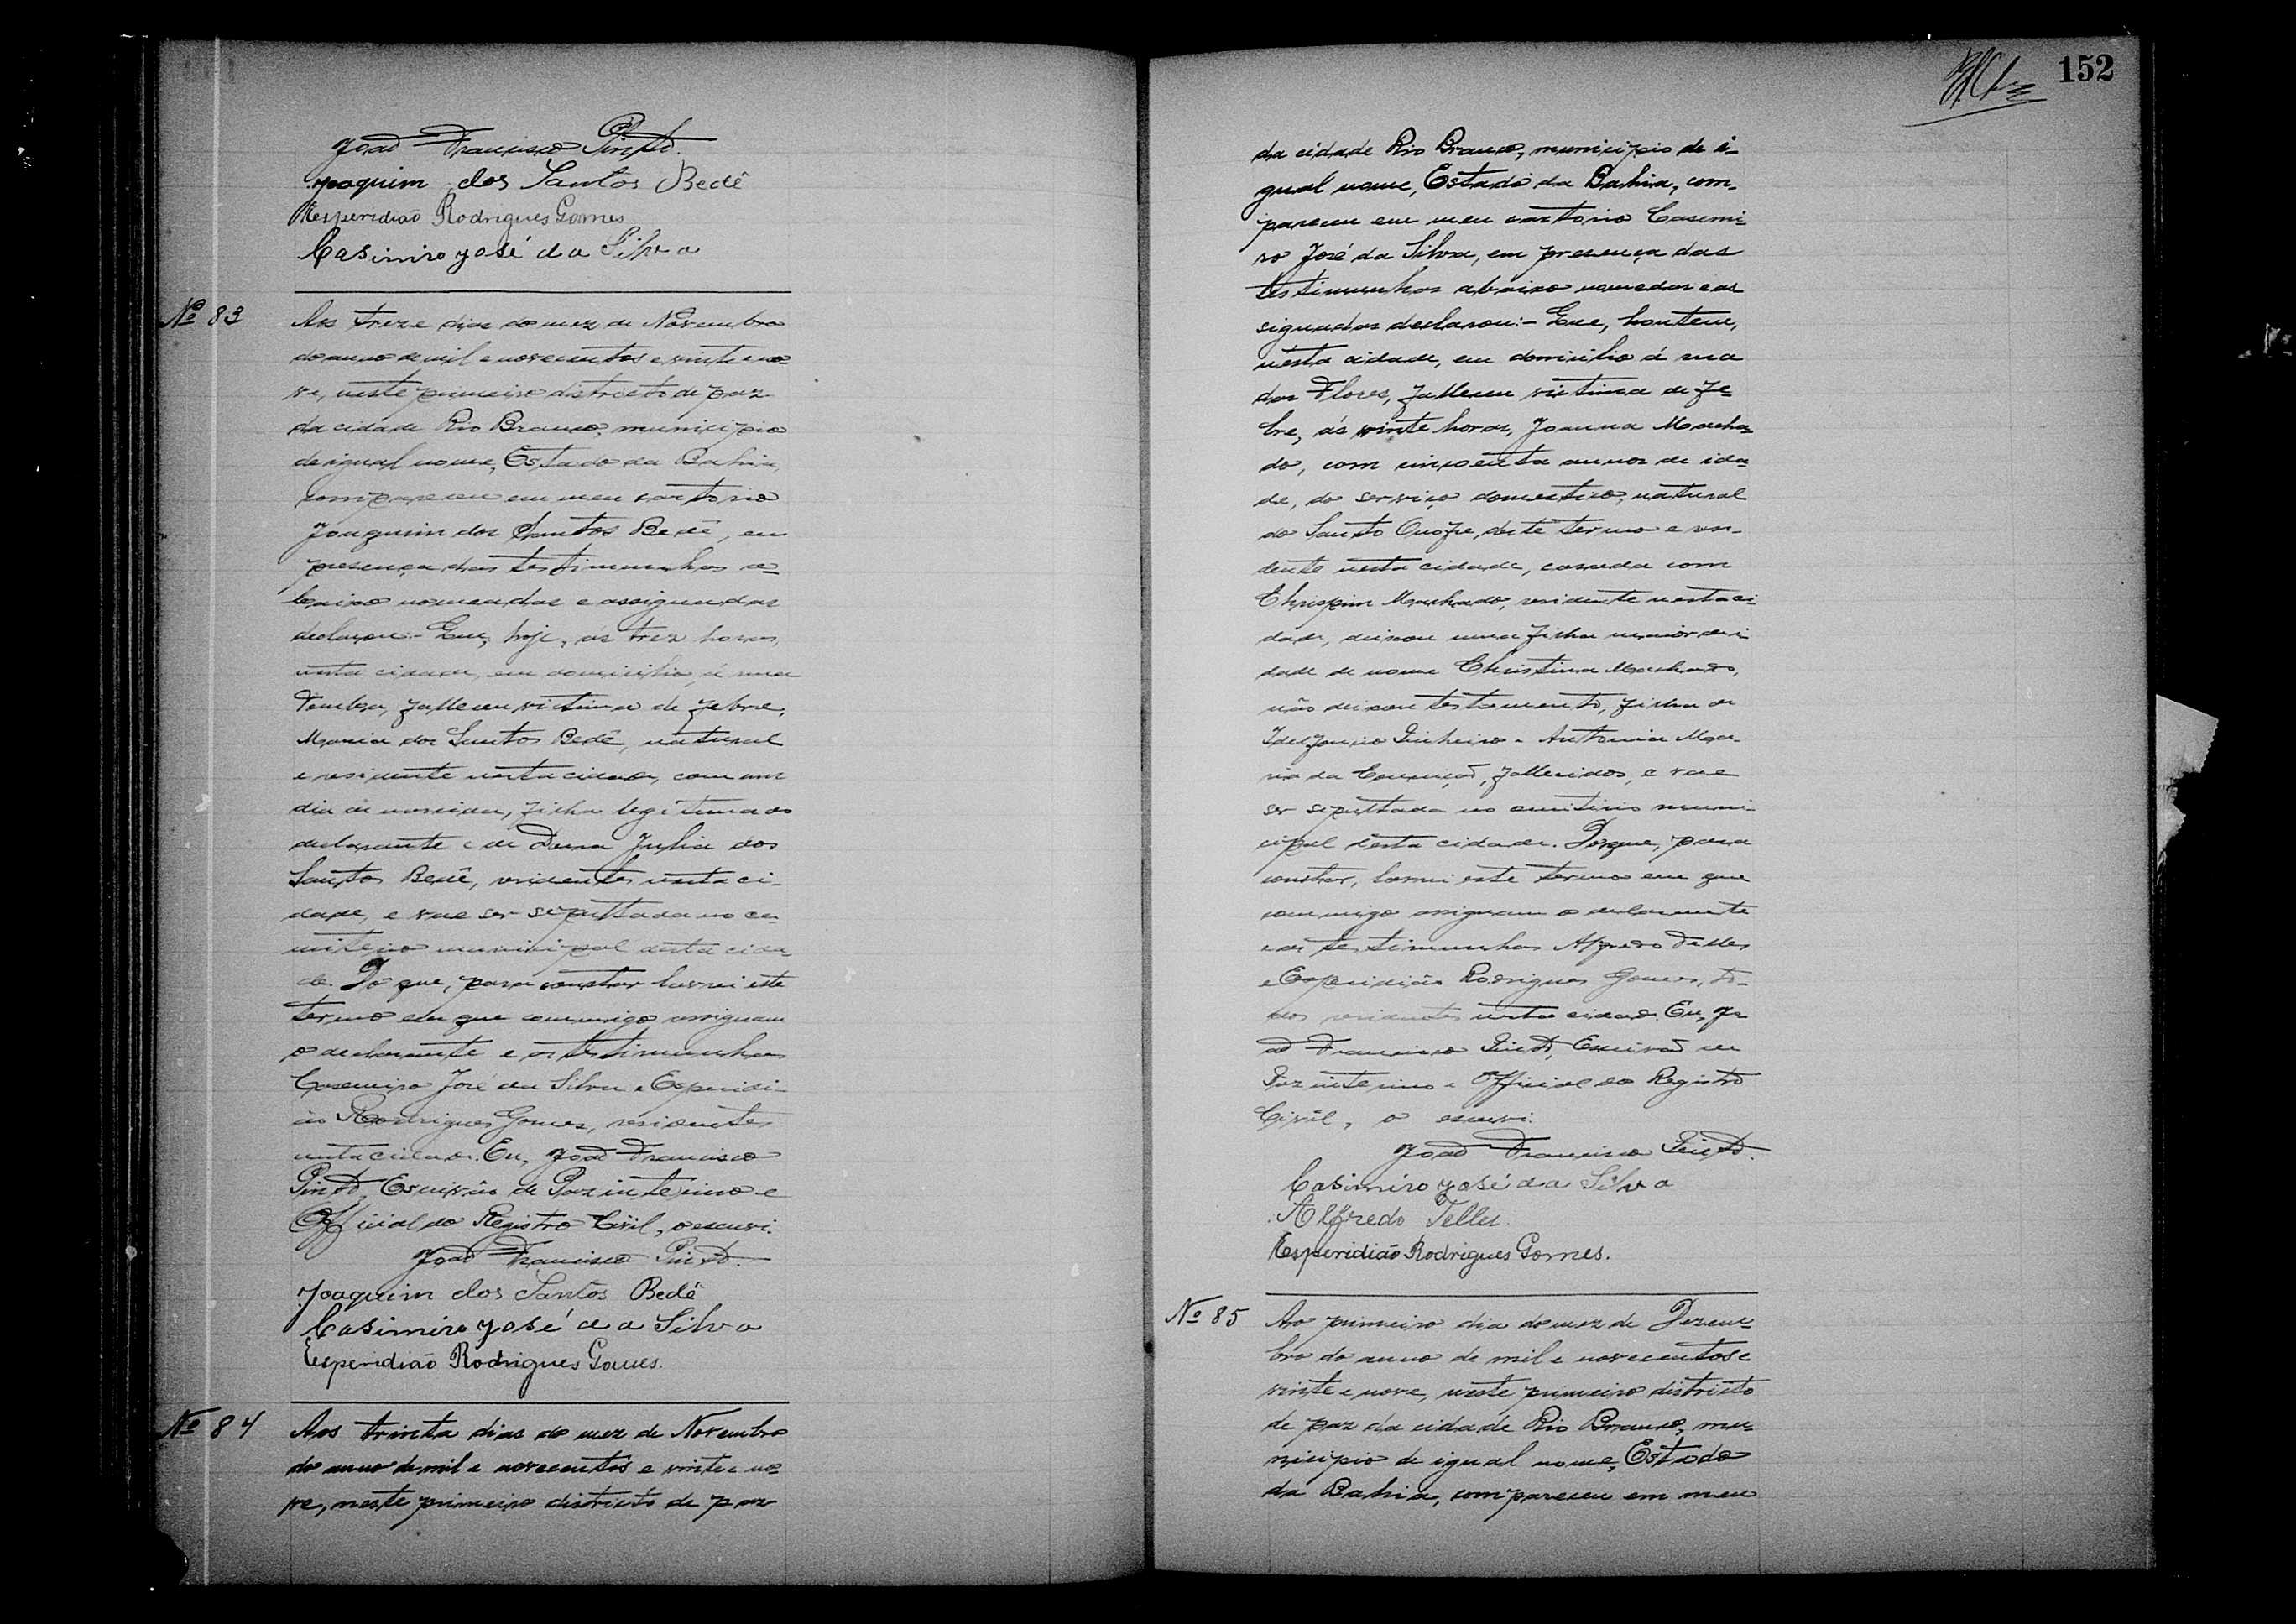 João Francisco Pinto.
Joaquim dos Santos Bedê
Esperidião Rodrigues Gomes
Casimiro José da Silva
Nº 83
Aos treze dias do mez de Novembro
do anno de mil e novecentos e vinte e no-
ve, neste primeiro districto de paz
da cidade Rio Branco, municipio
de igual nome, Estado da Bahia,
compareceu em meu cartorio
Joaquim dos Santos Bedê, em
presença das testimunhas a-
baixo nomeadas e assignadas
declarou:- Que, hoje, ás trez horas,
nesta cidade, em domicilio á rua
falleceu victima de febre,
Maria dos Santos Bedê, natural
e residente nesta cidade, com um
dia de nascida, filha legitima do
declarante e de Dona Julia dos
Santos Bedê, residentes nesta ci-
dade, e vae ser sepultada no ce-
miterio municipal desta cida-
de. Do que, para constar lavrei este
termo em que commigo assignam
o declarante e as testimunhas
Casemiro José da Silva e Esperidi-
ão Rodrigues Gomes, residentes
nesta cidade. Eu, João Francisco
Pinto, Escrivão de Paz interino e
Official do Registro Civil, o escrevi.
João Francisco Pinto.
Joaquim dos Santos Bedê
Casimiro José da Silva
Esperidião Rodrigues Gomes.
Nº 84
Aos trinta dias do mez de Novembro
do anno de mil e novecentos e vinte e no-
ve, neste primeiro districto de paz
152
da cidade Rio Branco, municipio de i-
gual nome, Estado da Bahia, com-
pareceu em meu cartorio Casemi-
ro José da Silva, em presença das
testimunhas abaixo nomeadas e as-
signadas declarou:- Que, hontem,
nésta cidade, em domicilio á rua
das Flores, falleceu victima de fe-
bre, ás vinte horas, Joanna Macha-
do, com cincoenta annos de ida-
de, do serviço domestico, natural
do Santo Onofre, deste termo e resi-
dente nesta cidade, casada com
Chrispim Machado, residente nesta ci
dade, deixou uma filha maior de i
dade de nome Christina Machado,
não deixou testamento, filha de
Pinheiro e Antonia Ma-
ria da Conceição, fallecidos, e vae
ser sepultada no cemiterio muni-
cipal desta cidade. Do que, para
constar, lavrei este termo em que
commigo assignam o declarante
e as testimunhas Alfredo Telles
e Esperidião Rodrigues Gomes, to-
dos residentes nesta cidade. Eu, Jo-
ão Francisco Pinto, Escrivão de
Paz interino e Official do Registro
Civil, o escrevi.
João Francisco Pinto.
Casimiro José da Silva
Alfredo Telles.
Esperidião Rodrigues Gomes.
Nº 85
Ao primeiro dia do mez de Dezem-
bro do anno de mil e novecentos e
vinte e nove, neste primeiro districto
de paz da cidade Rio Branco, mu-
nicipio de igual nome, Estado
da Bahia, compareceu em meu